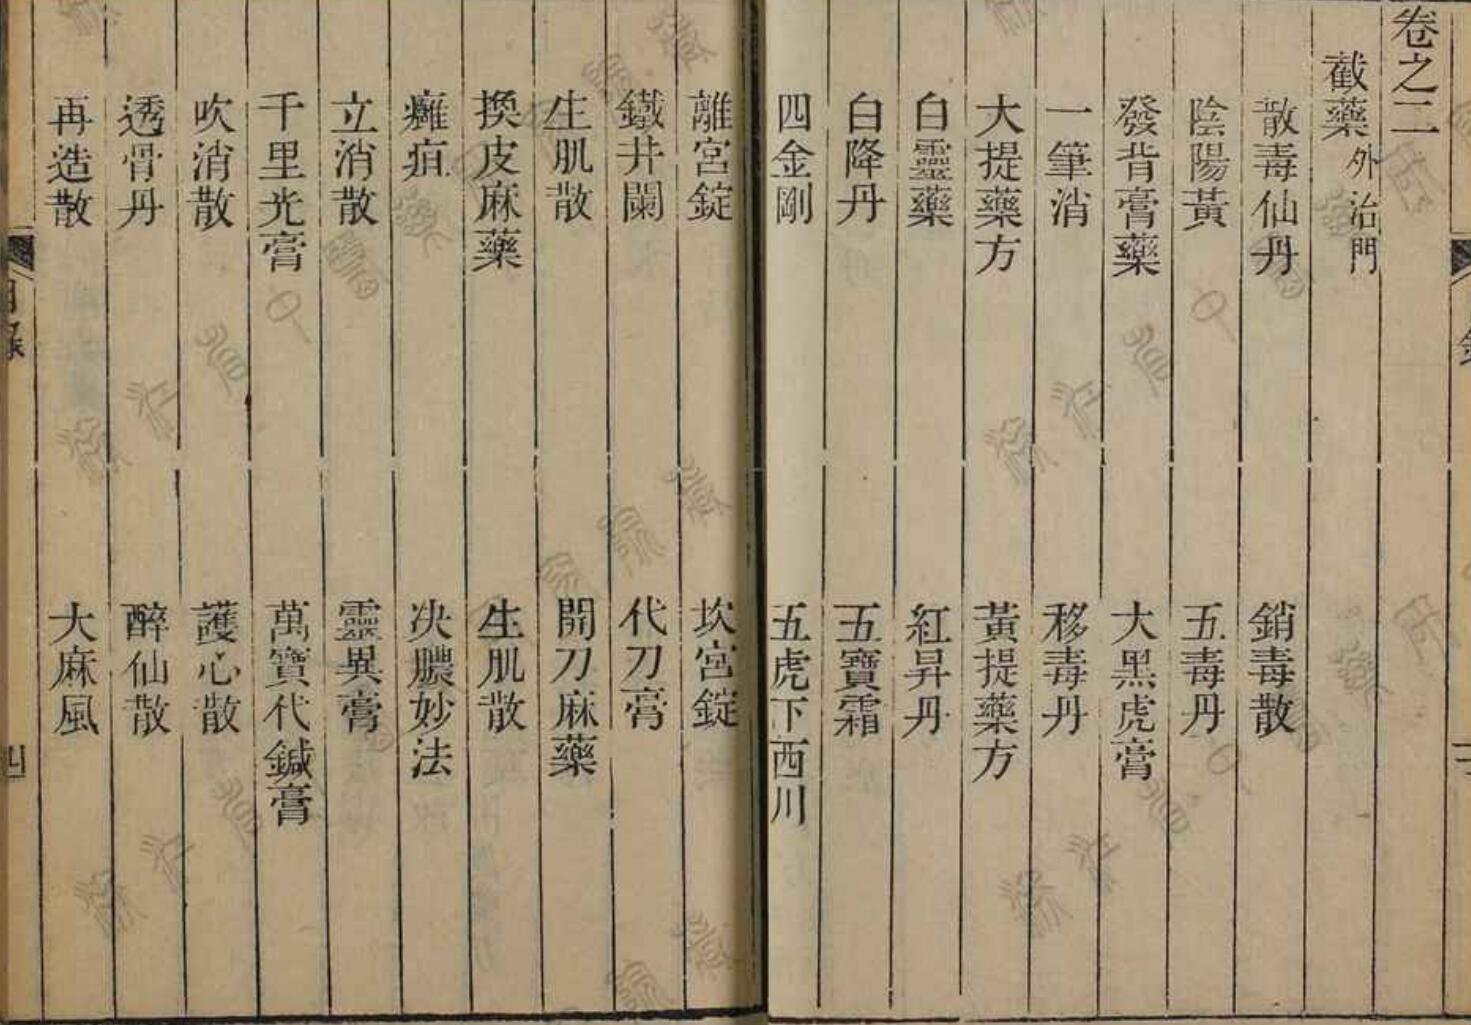 卷之二
截藥外治門
散毒仙丹　銷毒散
陰陽黃　五毒丹
發背膏藥　大黑虎膏
一筆消　移毒丹
大提藥方　黃提藥方
白靈藥　紅昇丹
白降丹　五寶霜
四金剛　五虎下西川
離宮錠　坎宮錠
鐵井闌　代刀膏
生肌散　開刀麻藥
換皮麻藥　生肌散
癱疽　决膿妙法
立消散　靈異膏
千里光膏　萬寶代鍼膏
吹消散　護心散
透骨丹　醉仙散
再造散　大麻風
目錄
四